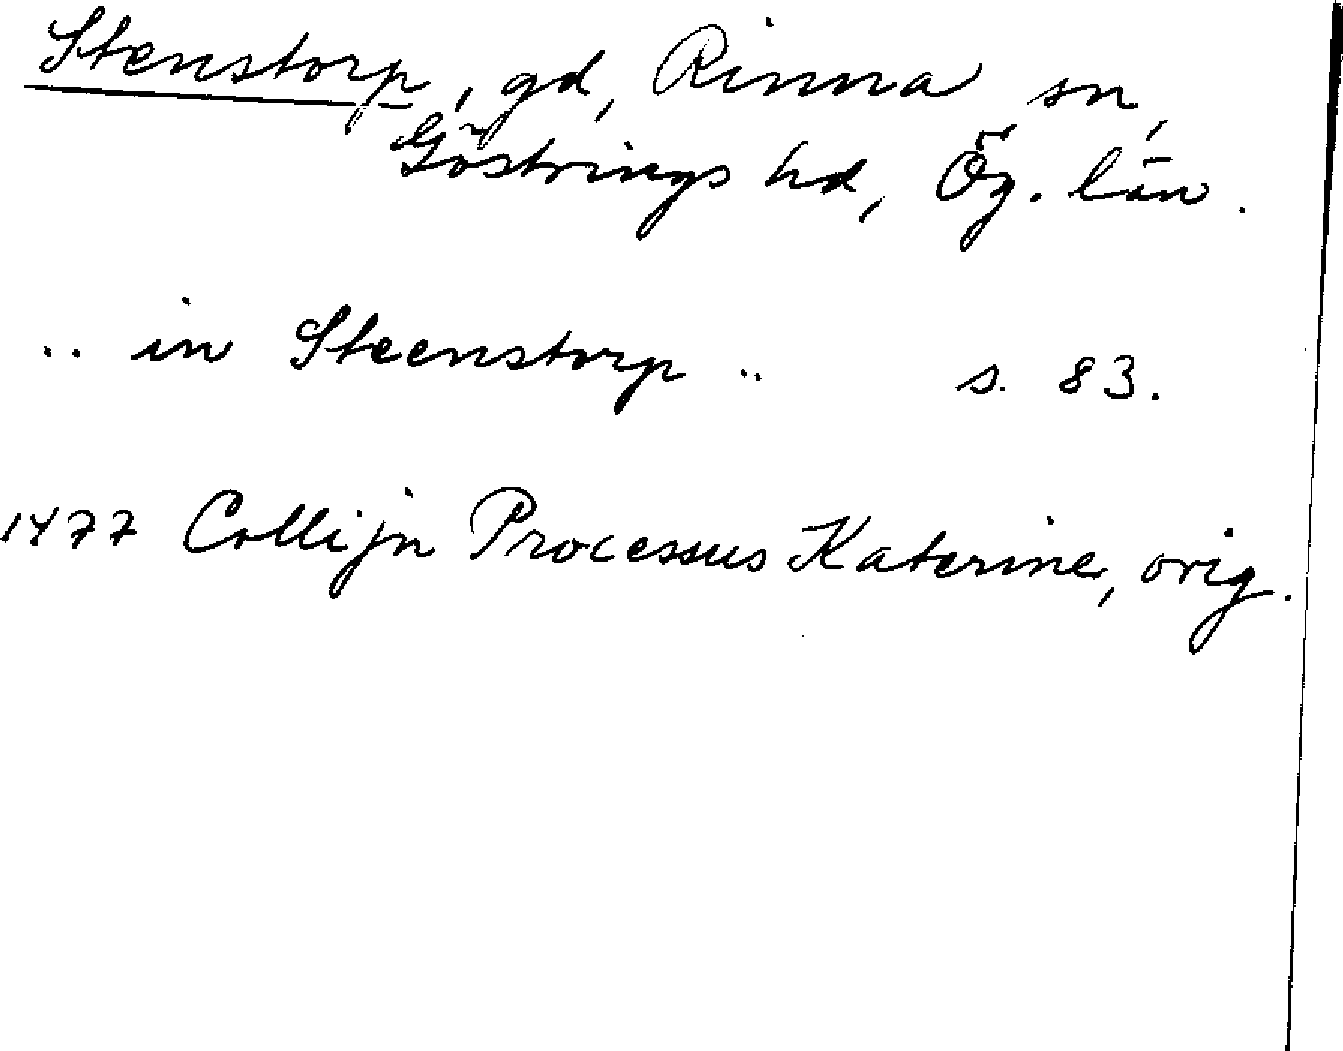 Stenstorp, gd, Rinna sn,
Göstrings hd, Ög. län.
.. in Steenstorp .. s. 83.
1477 Collijn Processus Katerine, orig.